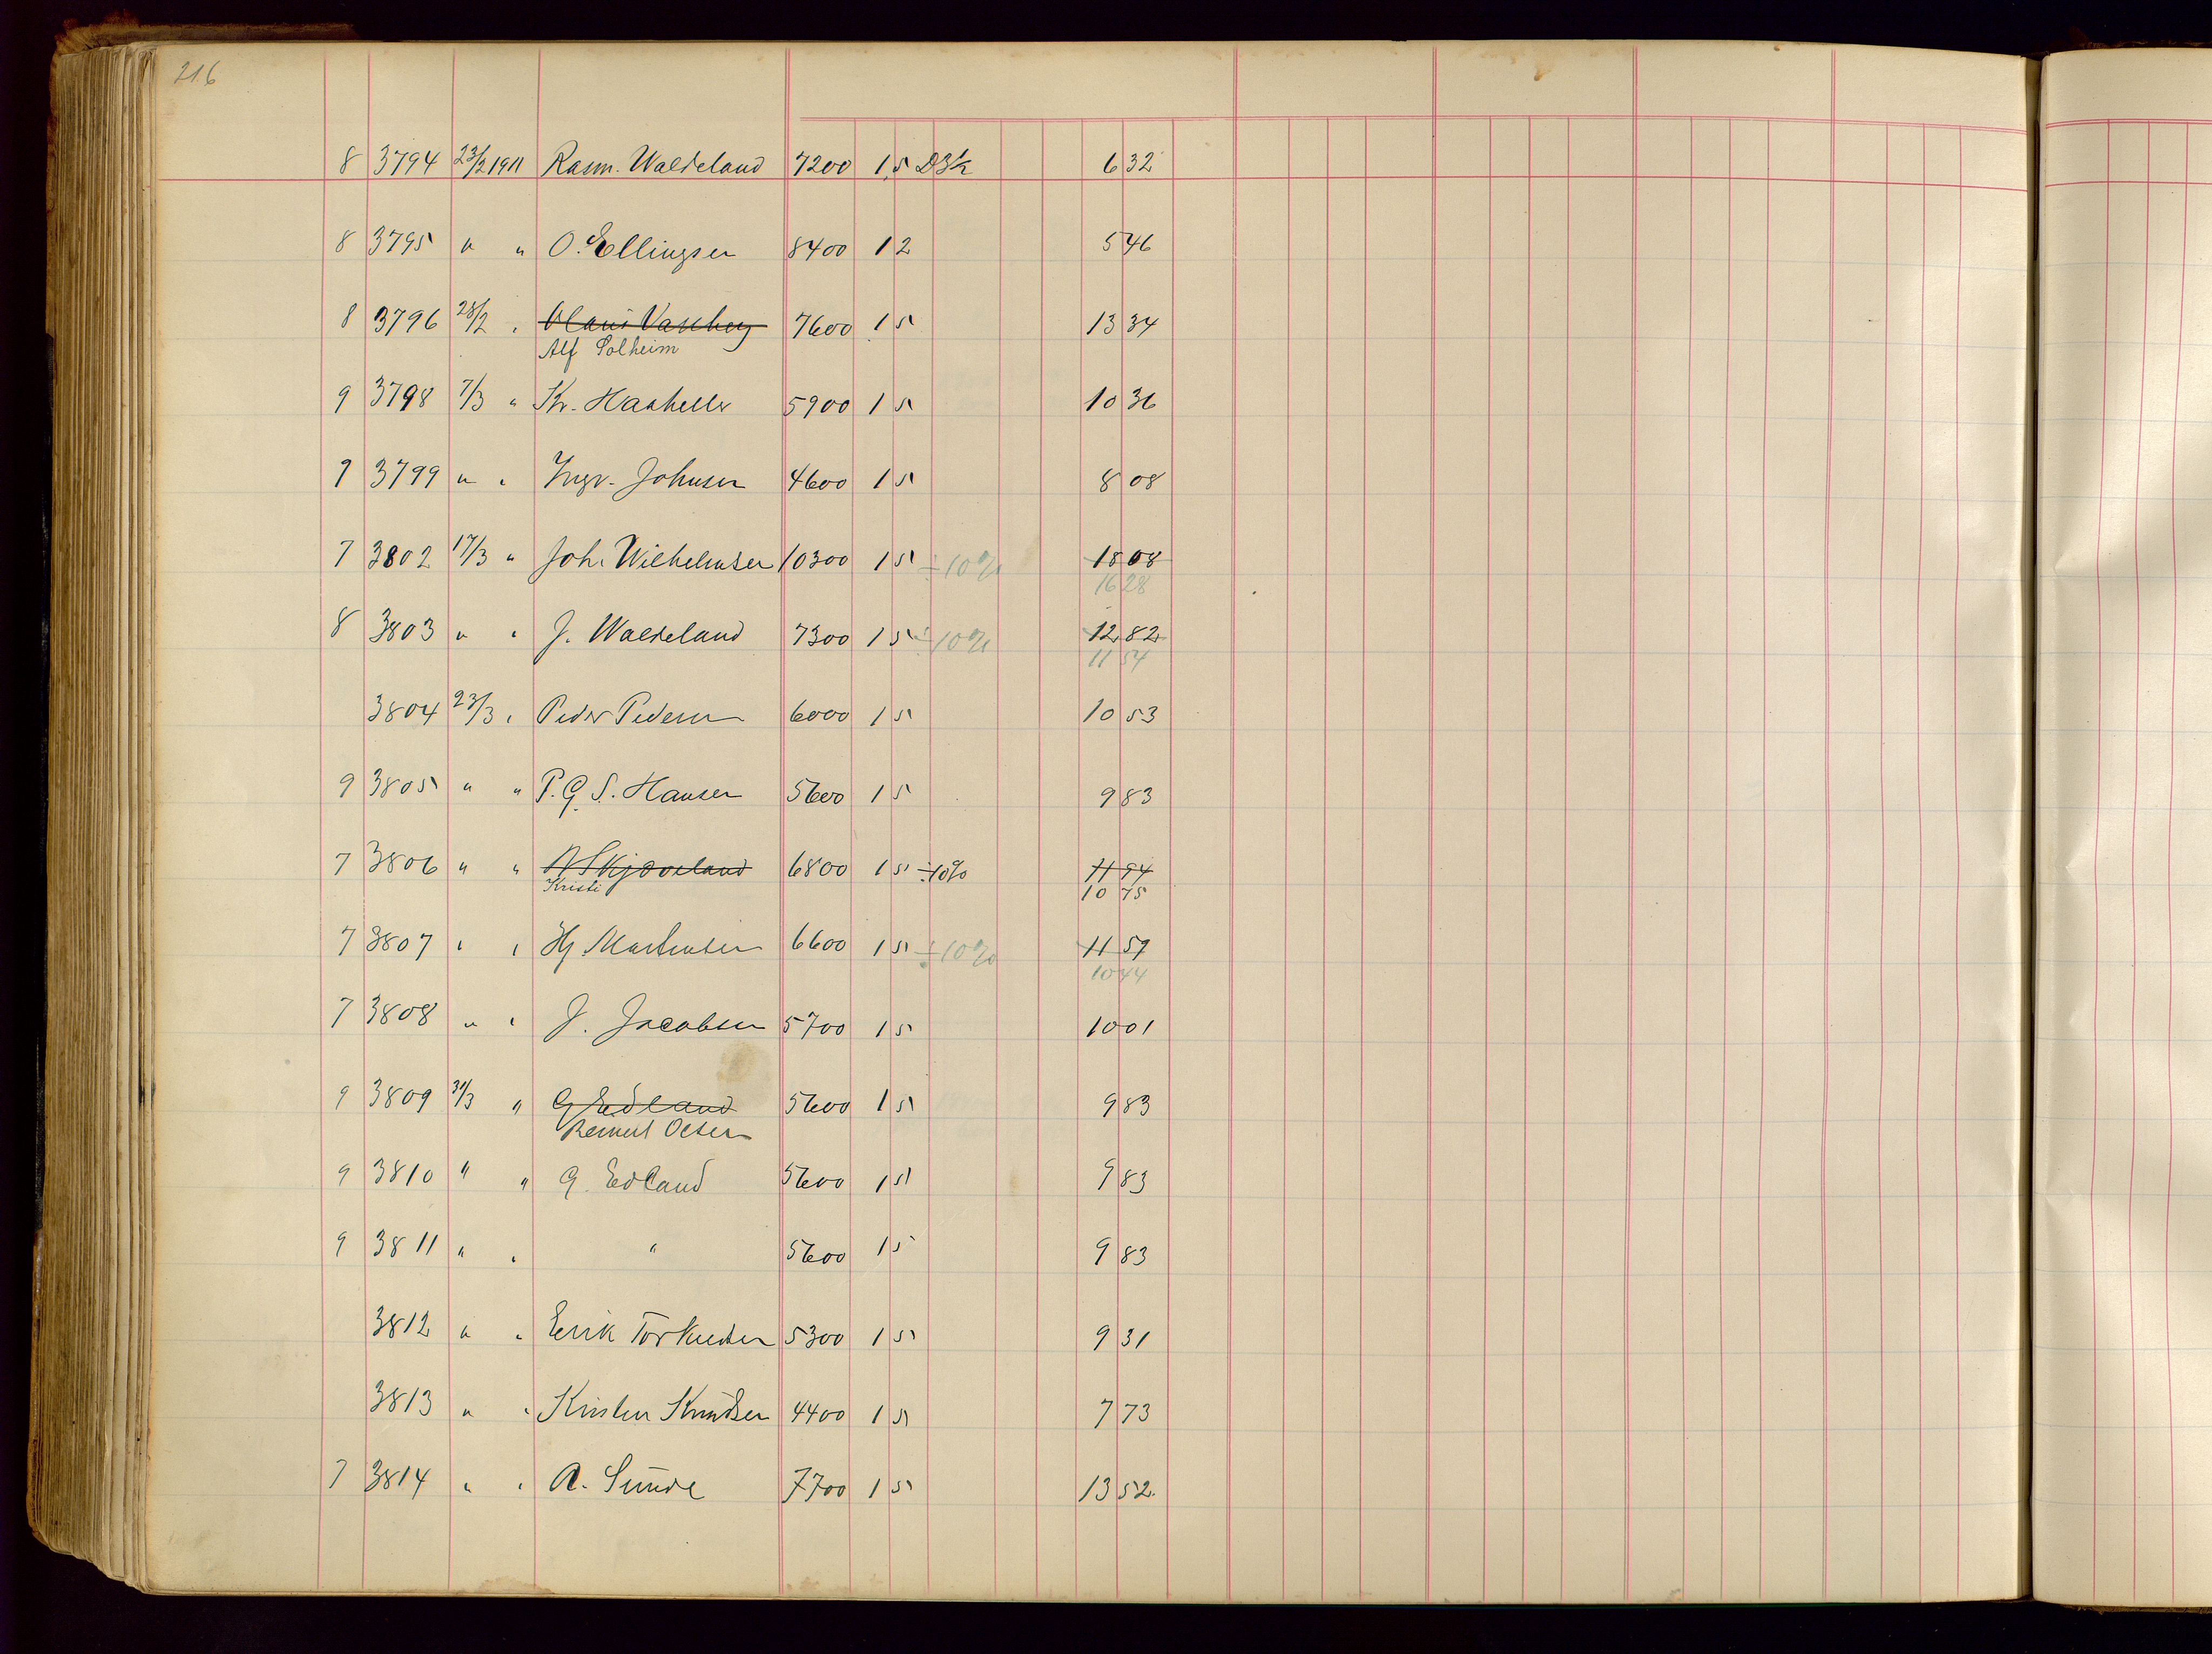 216
8 3794 23/2 1911 Rasm. Waldeland 7200 1 5 D3k 6 32
8 3795 " " O. Ellingsen 8400 1 2 5 46
8 3796 28/2 " Olaus Vasshey 7600 1 5 13 34
Alf Solheim
9 3798 7/3 " Kr. Hashelle 5900 1 5 10 36
9 3799 " " Ingv. Johnsen 4600 1 5 8 08
7 3802 17/3 " Joh. Wilhelmsen 10300 1 5 ÷10% 18 08
16 28
8 3803 " " J. Waldeland 7300 1 5 ÷10% 12 82
11 54
3804 23/3 " Peder Pedersen 6000 1 5 10 53
9 3805 " " P. G. S. Hansen 5600 1 5 9 83
7 3806 " " A Skjæveland 6800 1 5 ÷10% 11 94
Kristi 10 75
7 3807 " " Hj. Martinsen 6600 1 5 ÷10% 11 59
10 44
7 3808 " " J. Jacobsen 5700 1 5 10 01
9 3809 31/3 " G Edland 5600 1 5 9 83
Reinert Olsen
9 3810 " " G. Edland 5600 1 5 9 83
9 3811 " " " 5600 1 5 9 83
3812 " " Erik Torkildsen 5300 1 5 9 31
3813 " " Kristen Knudsen 4400 1 5 7 73
7 3814 " " A. Sunde 7700 1 5 13 52